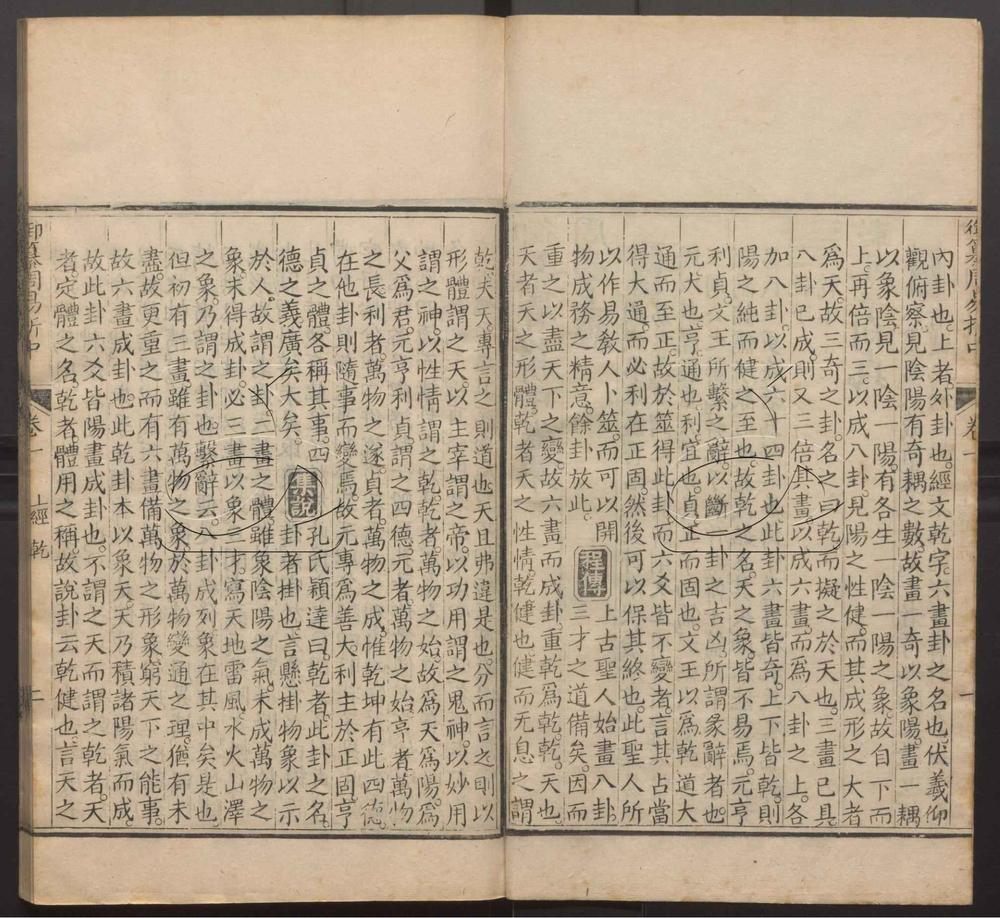 御纂周易折中
卷一
一
內卦也。上者外卦也。經文乾字。六畫卦之名也。伏羲仰
觀俯察。見陰陽有奇耦之數。故畫一奇以象陽。畫一耦
以象陰。見一陰一陽。有各生一陰一陽之象。故自下而
上。再倍而三。以成八卦。見陽之性健。而其成形之大者
爲天。故三奇之卦。名之曰乾。而擬之於天也。三畫已具。
八卦已成。則又三倍其畫。以成六畫。而爲八卦之上。各
加八卦。以成六十四卦也。此卦六畫皆奇。上下皆乾。則
陽之純而健之至也。故乾之名。天之象。皆不易焉。元亨
利貞。文王所繫之辭。以斷一卦之吉凶。所謂彖辭者也。
元大也。亨通也。利宜也。貞正而固也。文王以爲乾道大
通而至正。故於筮得此卦。而六爻皆不變者。言其占當
得大通。而必利在正固。然後可以保其終也。此聖人所
以作易敎人卜筮。而可以開
物成務之精意。餘卦放此。
程傳
上古聖人始畫八卦。
三才之道備矣。因而
重之。以盡天下之變。故六畫而成卦。重乾爲乾。乾。天也。
天者天之形體。乾者天之性情。乾健也。健而无息之謂
乾。夫天。專言之則道也。天且弗違是也。分而言之。則以
形體謂之天。以主宰謂之帝。以功用謂之鬼神。以妙用
謂之神。以性情謂之乾。乾者。萬物之始。故爲天爲陽。爲
父爲君。元亨利貞。謂之四德。元者。萬物之始。亨者。萬物
之長。利者。萬物之遂。貞者。萬物之成。惟乾坤有此四德。
在他卦則隨事而變焉。故元專爲善大。利主於正固。亨
貞之體。各稱其事。四
德之義。廣矣大矣。
集說
孔氏穎達曰。乾者。此卦之名。
卦者掛也。言懸掛物象以示
於人。故謂之卦。二畫之體。雖象陰陽之氣。未成萬物之
象。未得成卦。必三畫以象三才。寫天地雷風水火山澤
之象。乃謂之卦也。繫辭云。八卦成列。象在其中矣是也。
但初有三畫。雖有萬物之象。於萬物變通之理。猶有未
盡。故更重之而有六畫。備萬物之形象。窮天下之能事。
故六畫成卦也。此乾卦本以象天。天乃積諸陽氣而成。
故此卦六爻皆陽畫成卦也。不謂之天而謂之乾者。天
者。定體之名。乾者。體用之稱。故說卦云乾健也。言天之
御纂周易折中
卷一
上經 乾
二